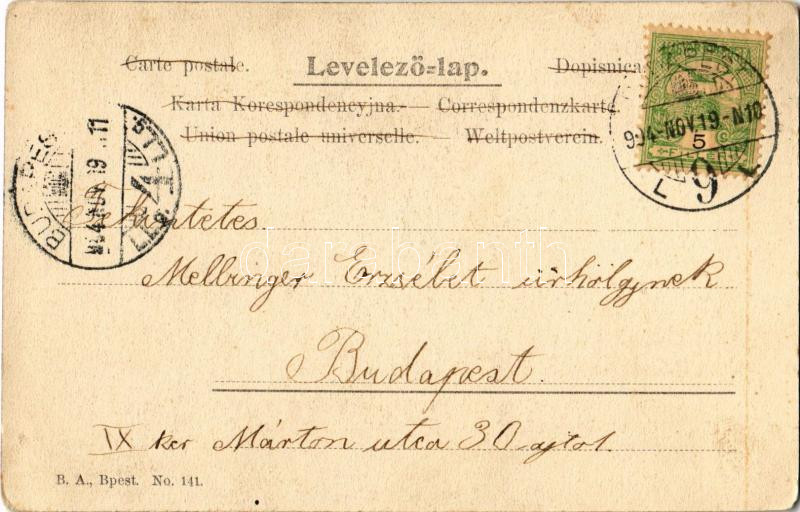 Carte postale.
Levelező=lap.
Dopisnica
Karta Korespondencyjna.- Correspondenzkarte.
Union postale universelle. Weltpostverein.
904-NOV.19-N10
5
9
Tekintetes
darabanth
Mellinger Erzsébet úrhölgynek
Budapest.
IX ker Márton utca 30 ajtó 1.
B. A., Bpest. No. 141.